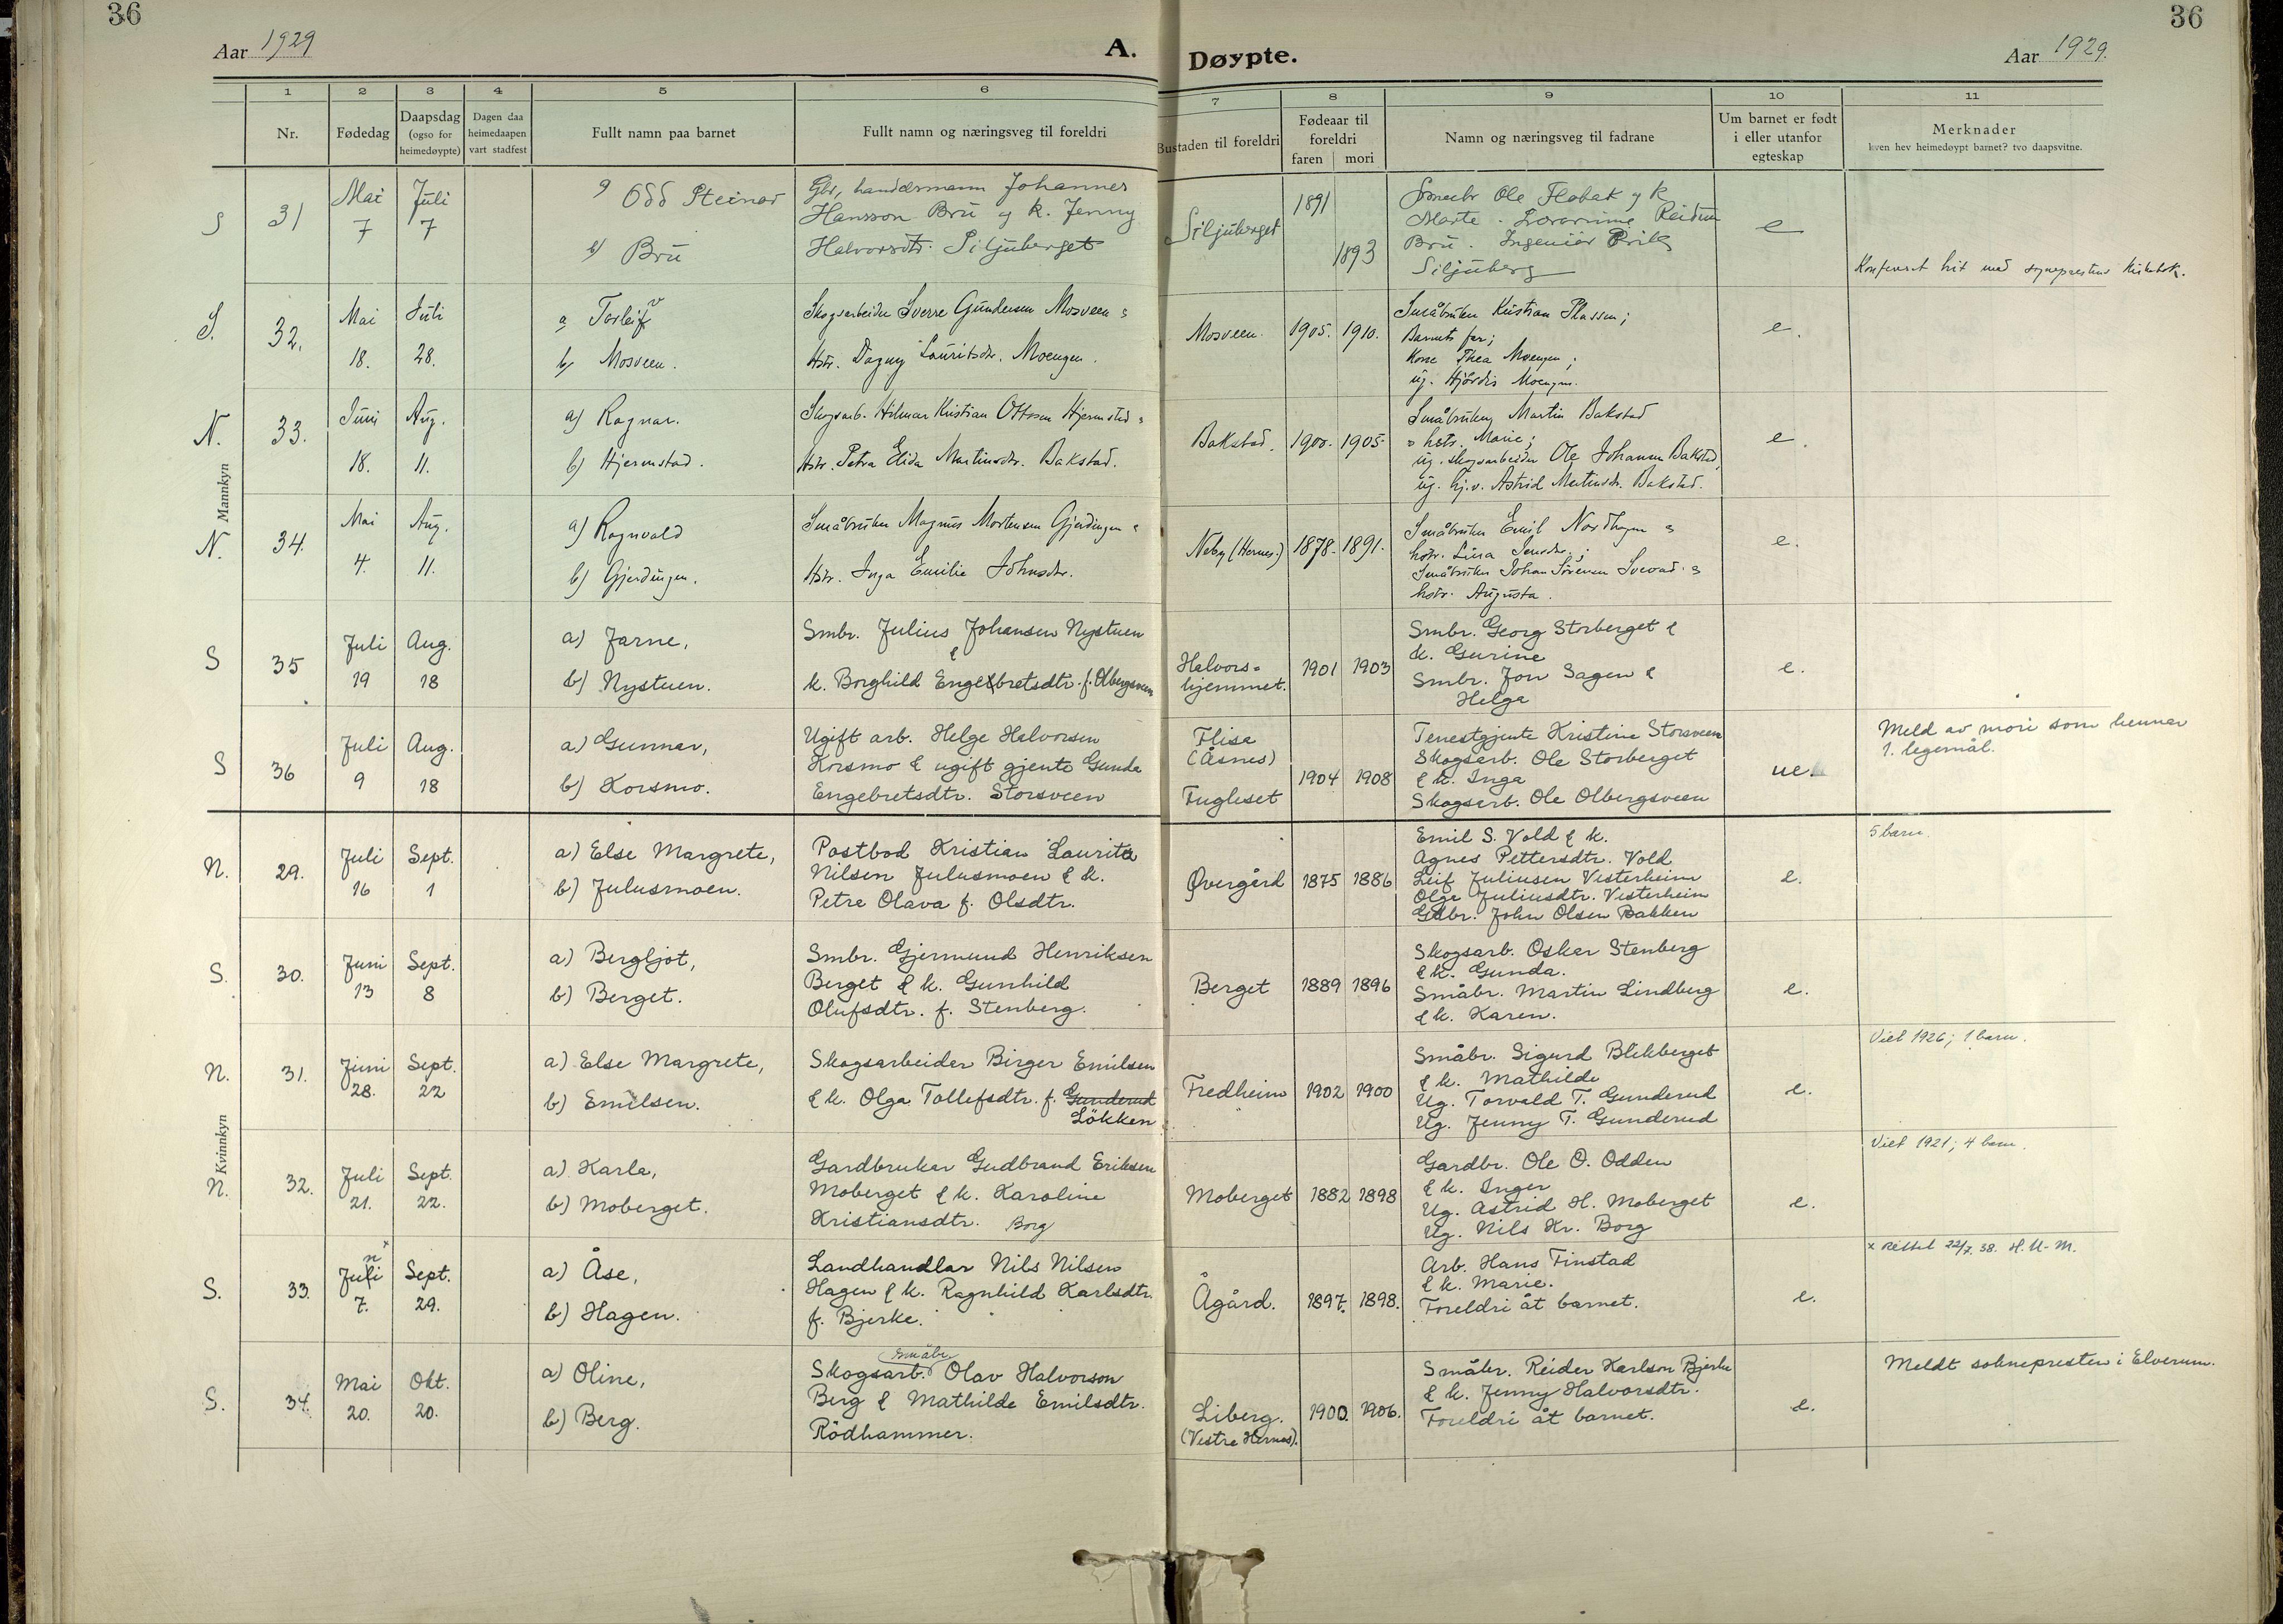 36
36
Aar 1929
A.
Døypte.
Aar 1929.
1 2 3 4 5 6 7 8 9 10 11
Nr.
Fødedag
Daapsdag (ogso for heimedøypte)
Dagen daa heimedaapen vart stadfest
Fullt namn paa barnet
Fullt namn og næringsveg til foreldri
Bustaden til foreldri
Fødeaar til foreldri
faren mori
Namn og næringsveg til fadrane
Um barnet er født i eller utanfor egteskap
Merknader
kven hev heimedøypt barnet? tvo daapsvitne.
Mannkyn
S 31
Mai 7
Juli 7
a) Odd Steinar
b) Bru
Gbr, handelsmann Johannes
Hansson Bru og k. Jenny
Halvorsdtr. Siljuberget
Siljuberget
1891 1893
Ole Flobak og k
Marte. Lærarinne Reidun
Bru. Ingeniør Erik
Siljuberg
e
Konferert hit med sogneprestens kirkebok.
S. 32.
Mai 18.
Juli 28.
a) Torleif v
b) Mosveen.
Skogsarbeider Sverre Gundersen Mosveen &
Hstr. Dagny Lauritsdtr. Moengen.
Mosveen.
1905. 1910.
Småbruker Kristian Plassen;
Barnets far;
Kone Thea Moengen;
ug. Hjördis Moengen.
e.
N. 33.
Juni 18.
Aug. 11.
a) Ragnar.
b) Hjermstad.
Skogsarb. Hilmar Kristian Ottosen Hjermstad &
Hstr. Petra Elida Martinsdtr. Bakstad.
Bakstad.
1900. 1905.
Småbruker Martin Bakstad
& hstr. Marie;
ug. skogsarbeider Ole Johansen Bakstad,
ug. hj.v. Astrid Martinsdtr. Bakstad.
e.
N. 34.
Mai 4.
Aug. 11.
a) Ragnvald
b) Gjerdingen.
Småbruker Magnus Mortensen Gjerdingen &
Hstr. Inga Emilie Johnsdtr.
Neby (Hernes.)
1878. 1891.
Småbruker Emil Nordhagen &
hstr. Lina Jensdtr.;
Småbruker Johan Sörensen &
hstr. Augusta.
e.
S 35
Juli 19
Aug. 18
a) Jarne,
b) Nystuen.
Smbr. Julius Johansen Nystuen
&
k. Borghild Engebretsdtr. f. Olbergsveen
Halvors-
hjemmet.
1901 1903
Smbr. Georg Storberget &
k. Gurine
Smbr. Jon Sagen &
Helga
e.
S 36
Juli 9
Aug. 18
a) Gunnar,
b) Korsmo.
Ugift arb. Helge Halvorsen
Korsmo & ugift gjente Gunda
Engebretsdtr. Storsveen
Flisa
(Åsnes)
Fugleset
1904 1908
Tenestgjente Kristine Storsveen
Skogsarb. Ole Storberget
& k. Inga
Skogsarb. Ole Olbergsveen
ue.
Meld av mori som hennar
1. legemål.
Kvinnkyn
N. 29.
Juli 16
Sept. 1
a) Else Margrete,
b) Julusmoen.
Postbod Kristian Laurits
Nilsen Julusmoen & k.
Petra Olava f. Olsdtr.
Øvergård
1875 1886
Emil S. Vold & k.
Agnes Pettersdtr. Vold
Leif Juliusen Vesterheim
Olga Juliusdtr. Vesterheim
Gdbr. John Olsen Bakken
e.
5 barn.
S. 30.
Juni 13
Sept. 8
a) Bergljot,
b) Berget.
Smbr. Gjermund Henriksen
Berget & k. Gunhild
Olufsdtr. f. Stenberg.
Berget
1889 1896
Skogsarb. Oskar Stenberg
& k. Gunda.
Småbr. Martin Lindberg
& k. Karen.
e.
N. 31.
Juni 28.
Sept. 22
a) Else Margrete,
b) Emilsen.
Skogsarbeider Birger Emilsen
& k. Olga Tollefsdtr. f. Gunderud
Lökken
Fredheim
1902 1900
Småbr. Sigurd Blikberget
& k. Mathilde
Ug. Torvald T. Gunderud
Ug. Jenny T. Gunderud
e.
Viet 1926; 1 barn.
N. 32.
Juli 21.
Sept. 22.
a) Karla,
b) Moberget.
Gardbruker Gudbrand Eriksen
Moberget & k. Karoline
Kristiansdtr. Borg
Moberget
1882 1898
Gardbr. Ole O. Odden
& k. Inger
Ug. Astrid H. Moberget
Ug. Nils Kr. Borg
e.
Viet 1921; 4 barn.
S. 33.
n x
Juli 7.
Sept. 29.
a) Åse,
b) Hagen.
Landhandlar Nils Nilsen
Hagen & k. Ragnhild Karlsdtr.
f. Bjerke.
Ågård.
1897. 1898.
Arb. Hans Finstad
& k. Marie.
Foreldri åt barnet.
e.
x Rettet 22/7. 38. H. U-M.
S. 34.
Mai 20.
Okt. 20.
a) Oline,
b) Berg.
Småbr.
Skogsarb. Olav Halvorson
Berg & Mathilde Emilsdtr.
Rödhammer.
Liberg.
(Vestre Hernes).
1900. 1906.
Småbr. Reidar Karlson Bjerke
& k. Jenny Halvorsdtr.
Foreldri åt barnet.
e.
Meldt sokneprestern i Elverum.